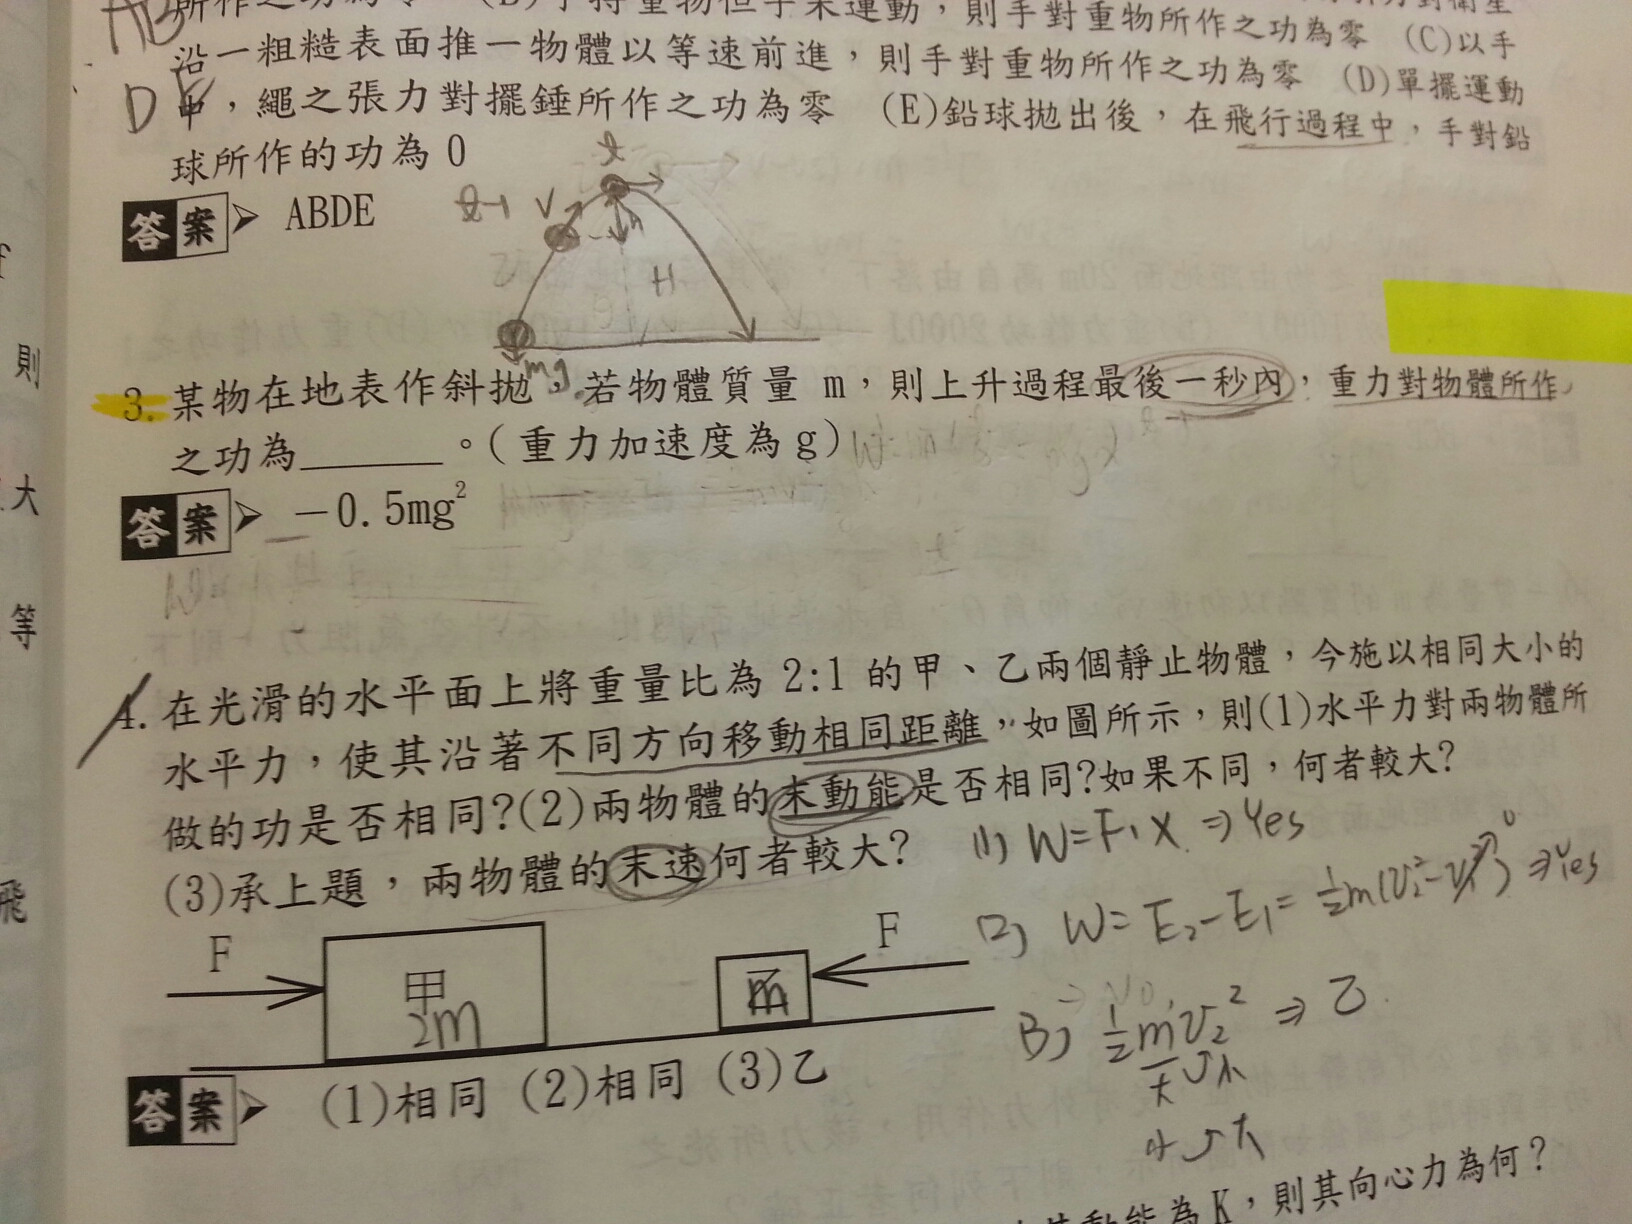 沿一粗糙表面推一物體以等速前進，則手對重物所作之功為零　(C)以手
中，繩之張力對擺錘所作之功為零　(E)鉛球拋出後，在飛行過程中，手對鉛　(D)單擺運動
球所作的功為0
答案 ABDE
t
t-1 V
h
H
mg
3. 某物在地表作斜拋，若物體質量 m，則上升過程最後一秒內，重力對物體所作
之功為______。(重力加速度為 g)
答案 －0.5mg²
4. 在光滑的水平面上將重量比為 2:1 的甲、乙兩個靜止物體，今施以相同大小的
水平力，使其沿著不同方向移動相同距離，如圖所示，則(1)水平力對兩物體所
做的功是否相同?(2)兩物體的末動能是否相同?如果不同，何者較大?
(3)承上題，兩物體的末速何者較大?
(1) W=F·X ⇒ Yes
(2) W= E₂-E₁= ½m(V₂²-V₁²) 0 ⇒Yes
(3) ½mV₂² ⇒ 乙
大 小
小 大
F
甲
2m
m
F
答案 (1)相同 (2)相同 (3)乙
動能為K，則其向心力為何?
則
大
等
飛